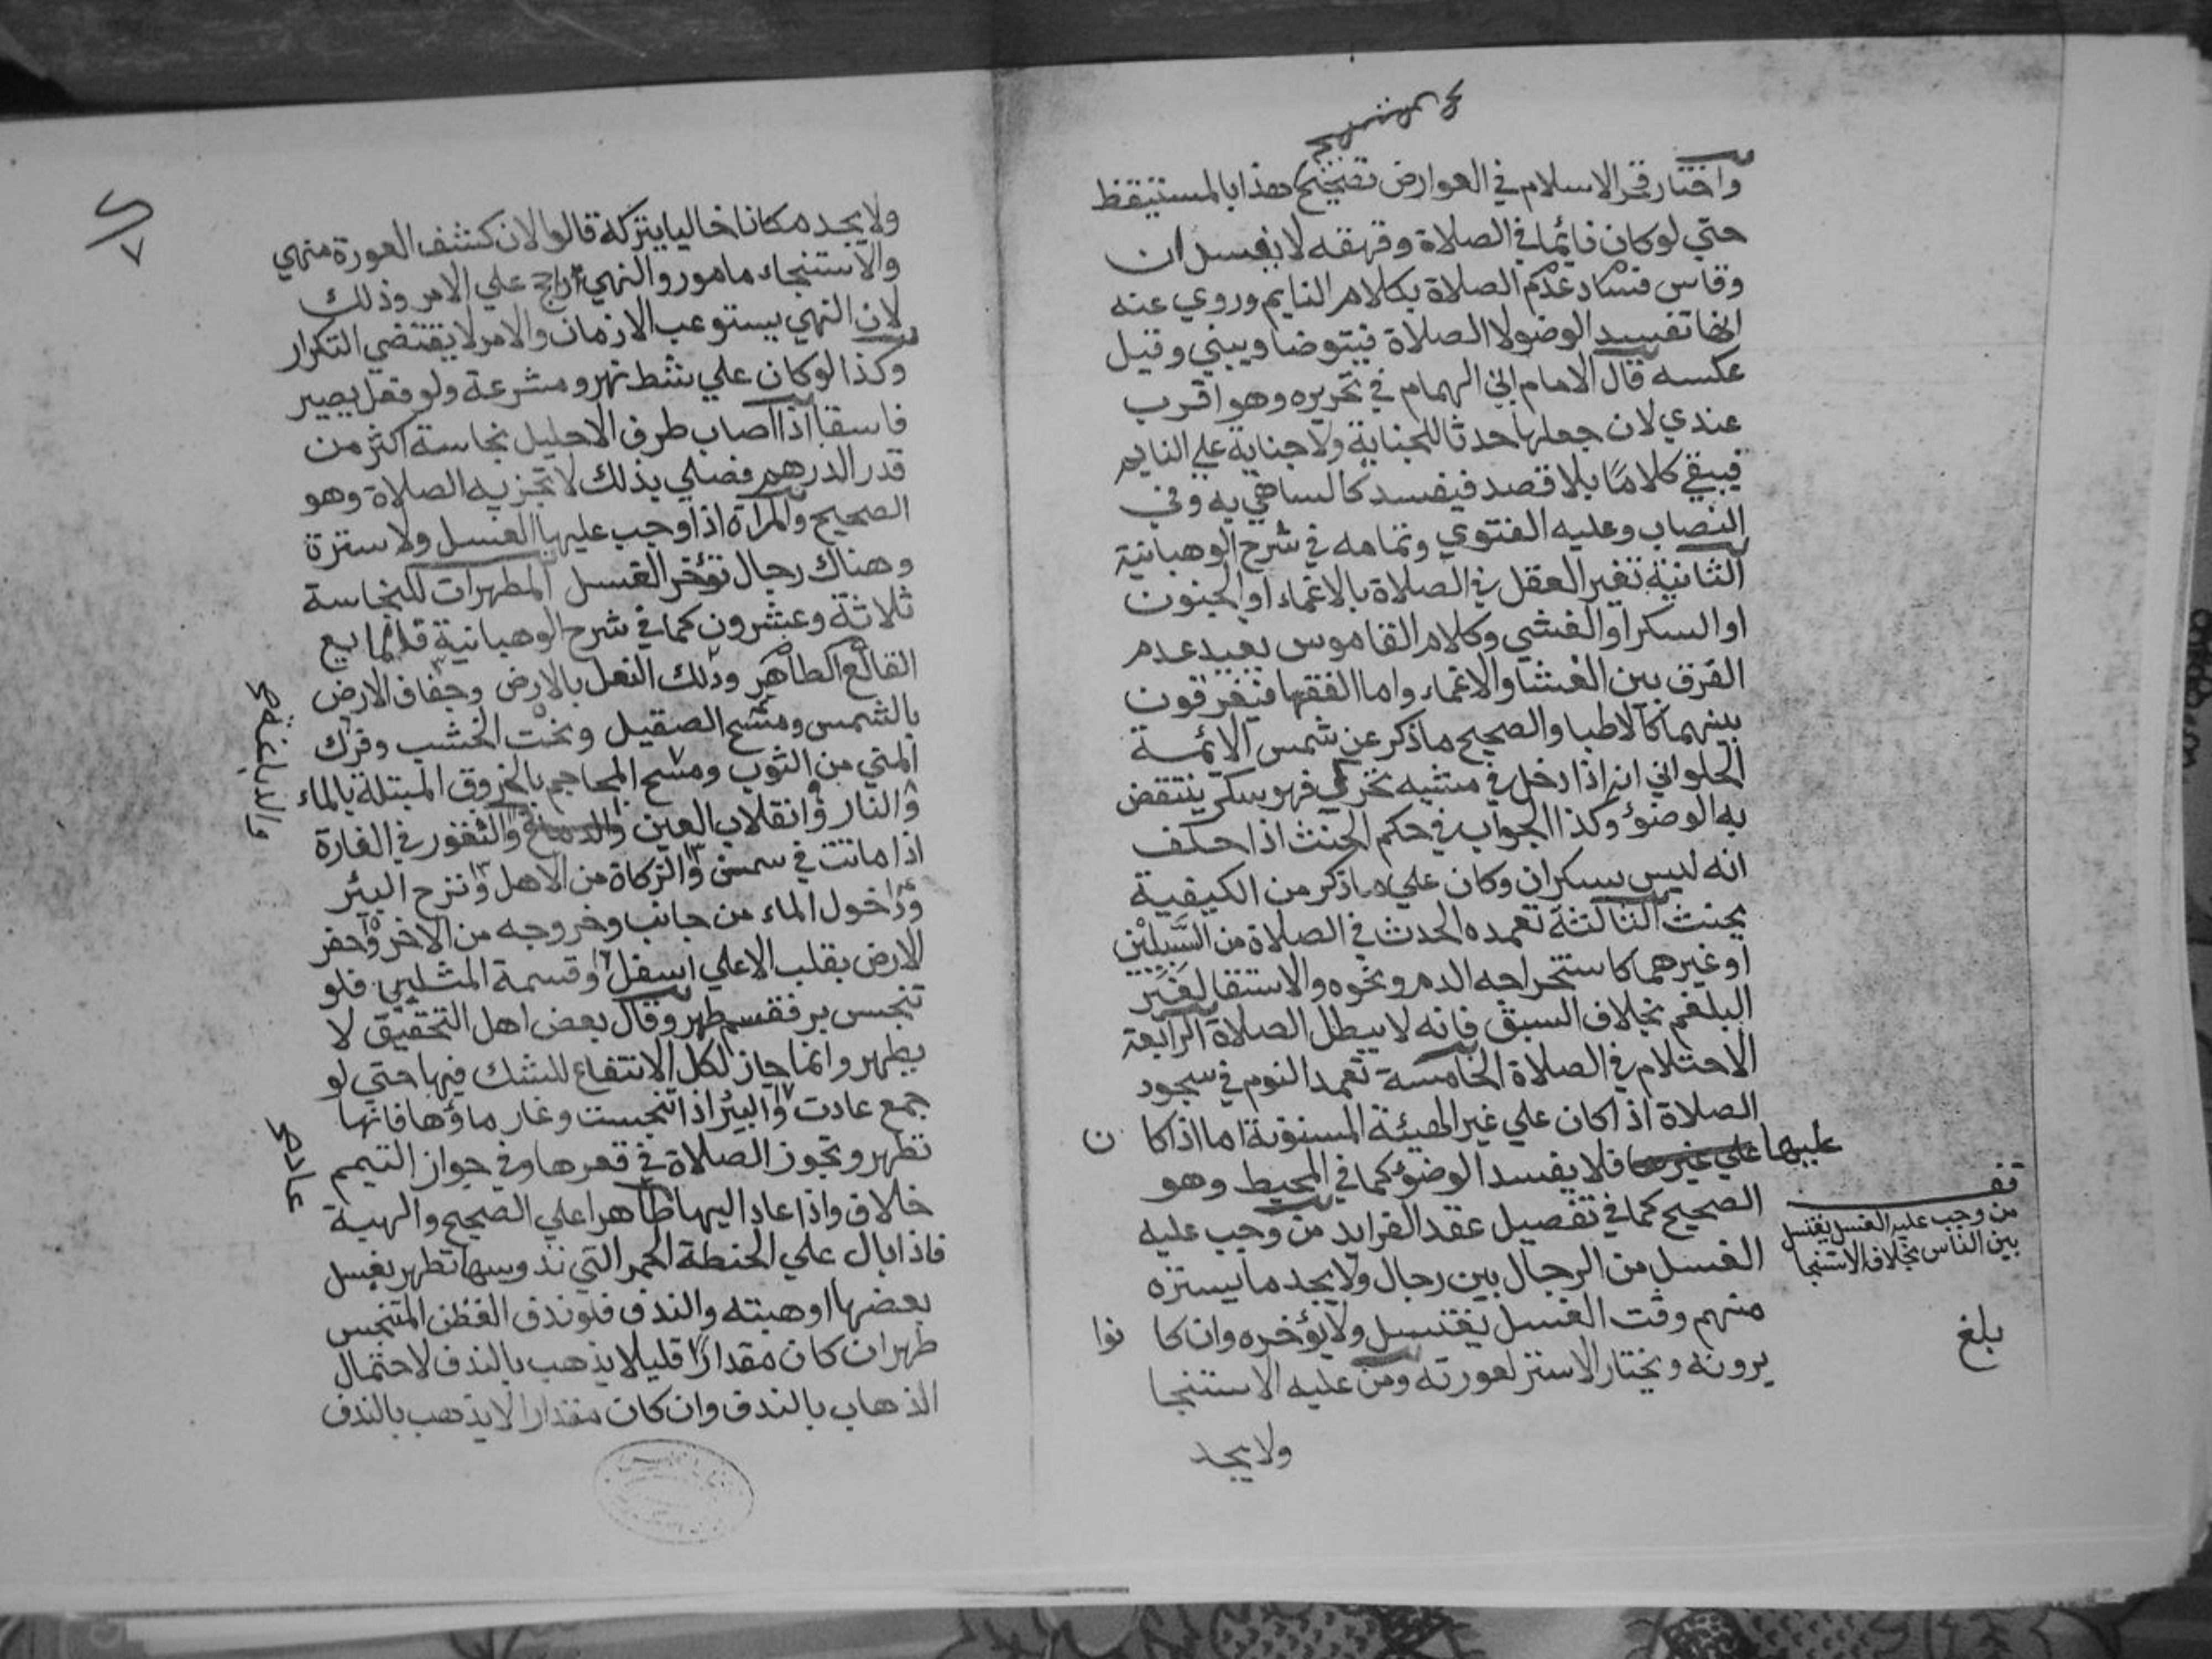 واختار فخر الاسلام في العوارض تخصيص هذا بالمستيقظ
حتي لو كان نائما في الصلاة وقهقه لا يفسدان
وقاس فساد عدم الصلاة بكلام النايم وروي عنه
انها تفسد الوضو لا الصلاة فيتوضا ويبني وقيل
عكسه قال الامام ابن الهمام في تحريره وهو اقرب
عندي لان جعلها حدثا للجناية ولا جناية علي النايم
فيبقي كلامًا بلا قصد فيفسد كالساهي به وفي
النصاب وعليه الفتوي وتمامه في شرح الوهبانية
الثانية تغير العقل في الصلاة بالاغماء او الجنون
او السكر او الغشي وكلام القاموس يفيد عدم
الفرق بين الغشا والاغماء واما الفقها فيفرقون
بينهما كالاطبا والصحيح ما ذكر عن شمس الائمة
الحلواني انه اذا دخل في مشيه تحرك فهو سكر ينتقض
به الوضوؤ وكذا الجواب في حكم الحنث اذا حلف
انه ليس بسكران وكان علي ما ذكر من الكيفية
يحنث الثالثة تعمده الحدث في الصلاة من السبيلين
او غيرهما كاستخراجه الدم ونحوه والاستقا لغير
البلغم بخلاف السبق فانه لا يبطل الصلاة الرابعة
الاحتلام في الصلاة الخامسة تعمد النوم في سجود
الصلاة اذا كان علي غير الهيئة المسنونة اما اذا كان
عليها فلا يفسد الوضوؤ كما في المحيط وهو
الصحيح كما في تفصيل عقد الفرايد من وجب عليه
الغسل من الرجال بين رجال ولا يجد ما يستره
منهم وقت الغسل يغتسل ولا يؤخره وان كانوا
يرونه ويختار الاستر لعورته ومن عليه الاستنجا
ولا يجد
تقف
من وجب عليه الغسل يغتسل
بين الناس بخلاف الاستنجا
بلغ
ولا يجد مكانا خاليا يتركه قالوا لان كشف العورة منهي
والاستنجاء مامور والنهي راجح علي الامر وذلك
لان النهي يستوعب الازمان والامر لا يقتضي التكرار
وكذا لو كان علي شط نهر ومشرعة ولو فعل يصير
فاسقا اذا اصاب طرف الاحليل نجاسة اكثر من
قدر الدرهم فصلي بذلك لا تجزيه الصلاة وهو
الصحيح والمراة اذا وجب عليها الغسل ولا سترة
وهناك رجال تؤخر الغسل المطهرات للنجاسة
ثلاثة وعشرون كما في شرح الوهبانية قلا المايع
القالع الطاهر ودلك النعل بالارض وجفاف الارض
بالشمس ومسح الصقيل ونحت الخشب وفرك
المني من الثوب ومسح المحاجم بالخروق المبتلة بالماء
والنار وانقلاب العين والتقور في الفارة
اذا ماتت في سمن والزكاة من الاهل ونزح البئر
ودخول الماء من جانب وخروجه من الاخر وحفر
الارض بقلب الاعلي اسفل وقسمة المثلي فلو
تنجس بر فقسم طهر وقال بعض اهل التحقيق لا
يطهر وانما جاز لكل الانتفاع للشك فيها حتي لو
جمع عادت والبئر اذا تنجست وغار ماؤها فانها
تطهر وتجوز الصلاة في قعرها وفي جواز التيمم
خلاف واذا عاد اليها طاهرا علي الصحيح والهبة
فاذا بال علي الحنطة الحمر التي تدوسها تطهر بغسل
بعضها او هبته والندف فلو ندف القطن المتنجس
طهر ان كان مقدارًا قليلا يذهب بالندف لاحتمال
الذهاب بالندف وان كان مقدارا لا يذهب بالندف
والدباغة صح
عاد صح